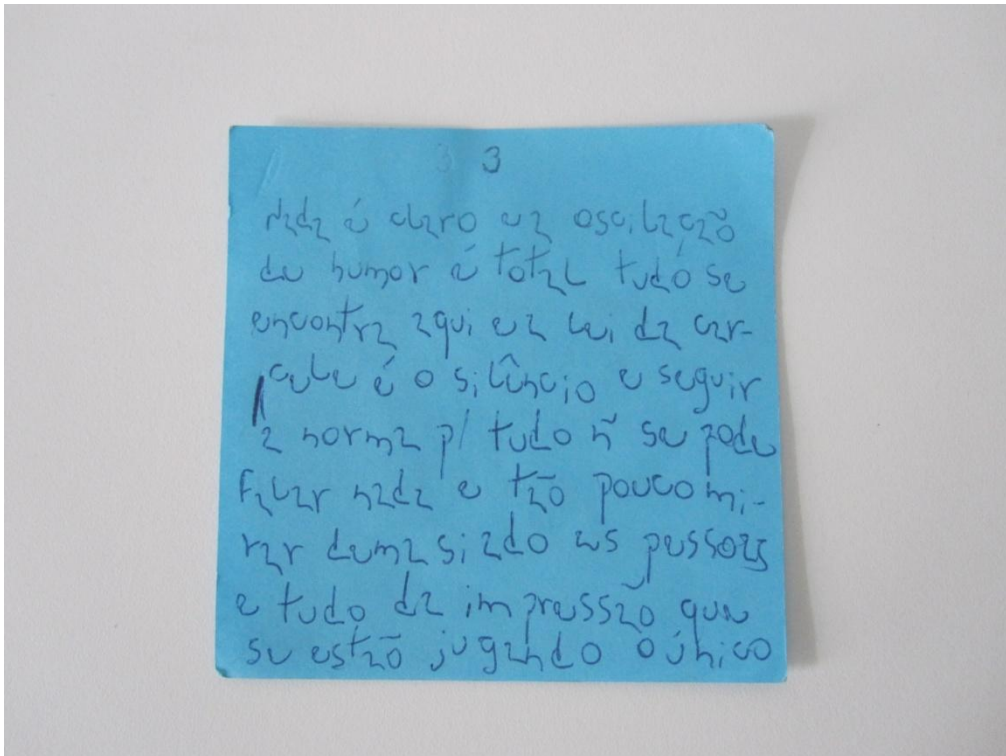 3 3
nada é claro e a oscilação
de humor é total tudo se
encontra aqui e a lei da car-
cele é o silêncio e seguir
a norma p/ tudo ñ se pode
falar nada e tão pouco mi-
rar demasiado as pessoas
e tudo da impressão que
se estão jugando o único